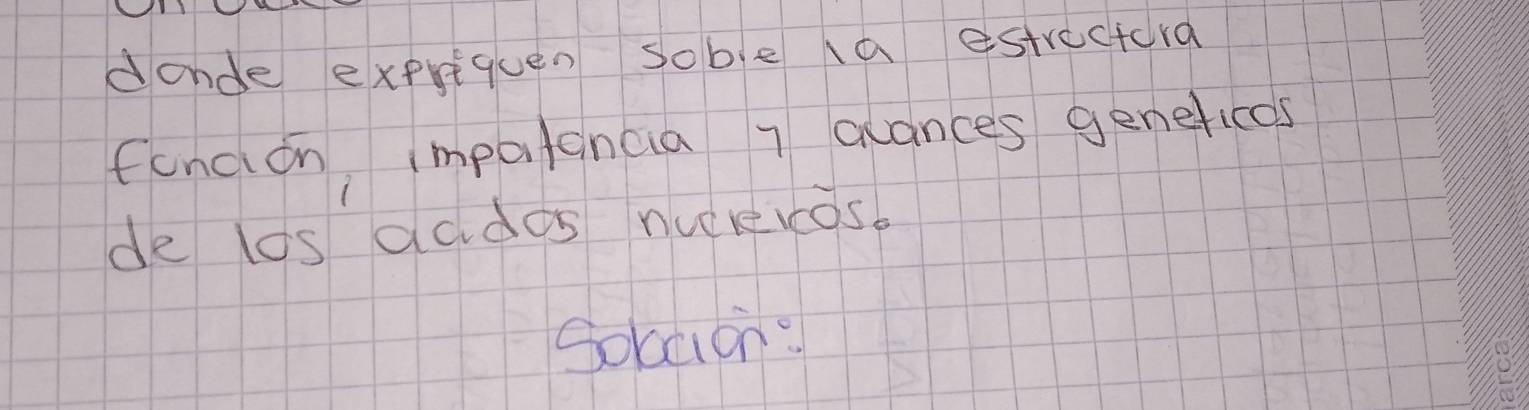 donde expliquen sobre la estructura
función, importancia y avances geneticos
de los acidos nucleicos.
Solución:
arca